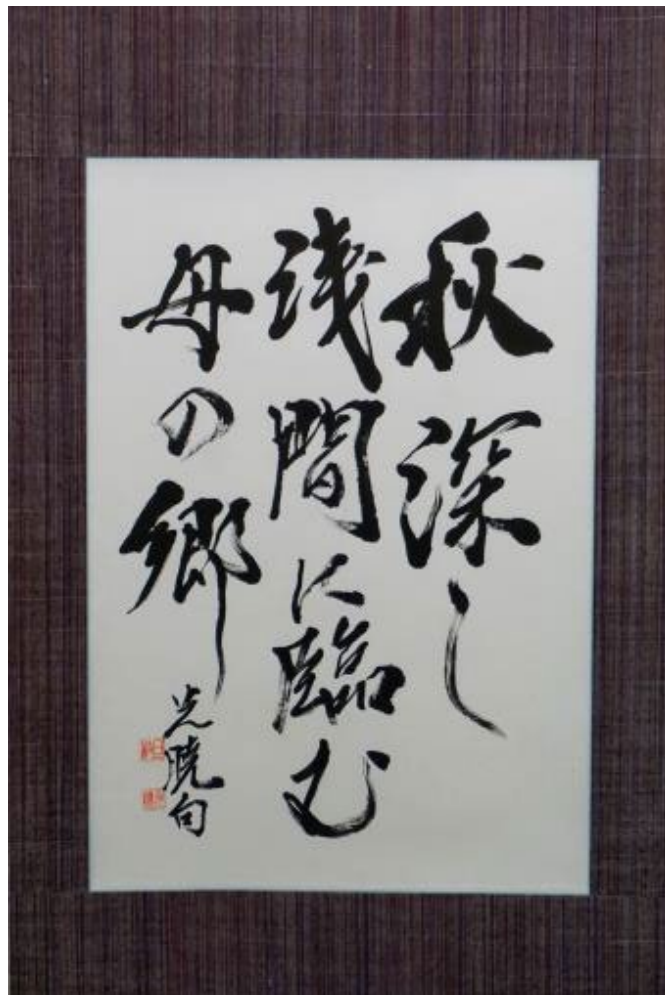 秋深し
浅間に臨む
母の郷
光暁句